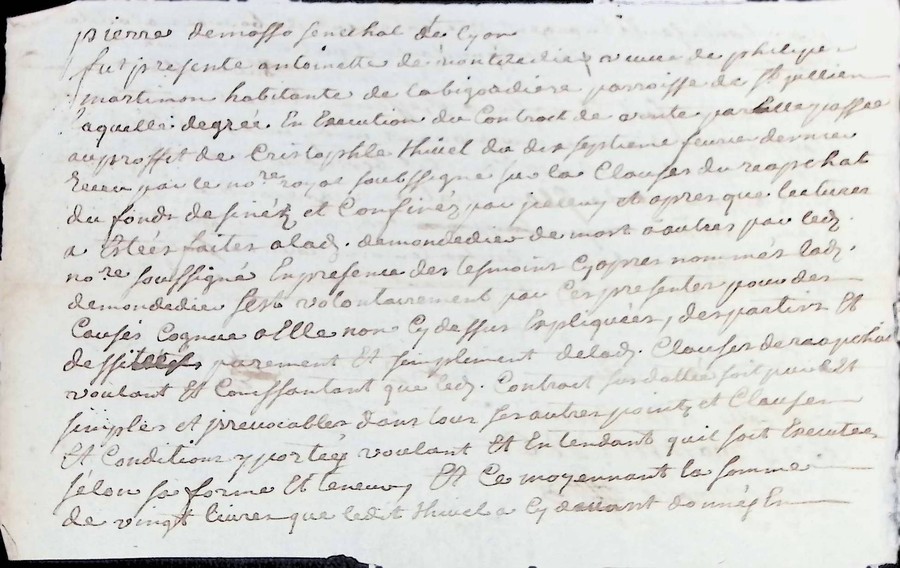 pierre demasso senechal de Lyon
fut presente antoinette de veuve de philipe
martinon habitante de labigoadiere parroisse de St Jullien
laquelle degrée En Execution du Contract de vente par Elle passée
au proffit de Cristophle thivel du dix septieme fevrier dernier
Receu par le nore royal soubssigné sur la Clauses du reapchat
du fonds desinéz et Confinéz par jceluy et apres que lectures
a Estées faites alad. demondedieu de mot a autres par led.
nore soussigné En presence des tesmoins Cy apres nommés lad.
demondedieu sest volontairement par Ces presentes pour des
Causes Cognue a Elle non Cy dessus Expliquées, despartirs Et
purement Et simplement delad. Clauses de reapchat
voulant Et Conssantant que led. Contract susdatté soit pur Et
simples et jrrevocables dans tous ses autres pointz et Clauses
Et Conditions y portéz voulant Et Entendant quil soit Executées
sélon sa forme Et teneur, Et Ce moyennant la somme
de vingt livres que ledit thivel a Cy davant données En